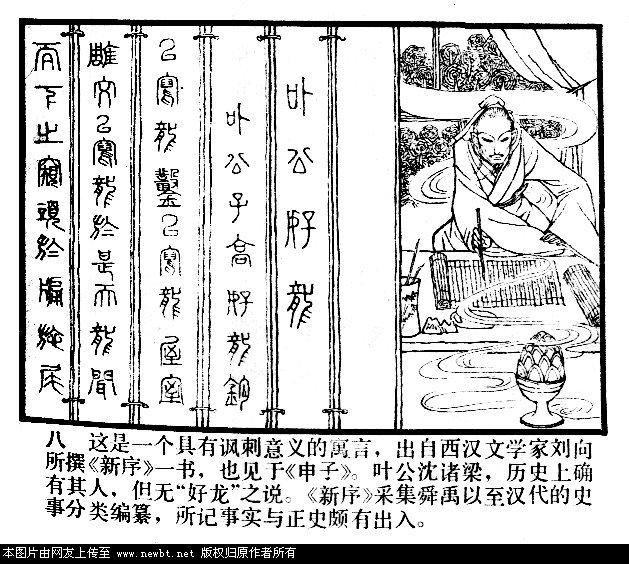 叶公好龍
叶公子高好龍鉤
以寫龍鑿以寫龍屋室
雕文以寫龍於是天龍聞
而下之窺頭於牖施尾
八 这是一个具有讽刺意义的寓言，出自西汉文学家刘向
所撰《新序》一书，也见于《申子》。叶公沈诸梁，历史上确
有其人，但无“好龙”之说。《新序》采集舜禹以至汉代的史
事分类编纂，所记事实与正史颇有出入。
本图片由网友上传至 www.newbt.net 版权归原作者所有